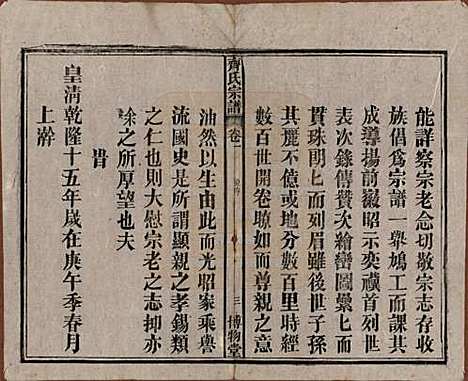 能詳察宗老念切敬宗志存收
族倡爲宗譜一舉鳩工而課其
成導揚前徽昭示奕禩首列世
表次錄傳贊次繪巒圖纍七而
貫珠朗七而列眉雖後世子孫
其麗不億或地分數百里時経
數百世開卷瞭如而尊親之意
齊氏宗譜
卷一
三
博物堂
油然以生由此而光昭家乘譽
流國史是所謂顯親之孝錫類
之仁也則大慰宗老之志抑亦
徐之所厚望也夫
旹
皇清乾隆十五年歲在庚午季春月
上澣